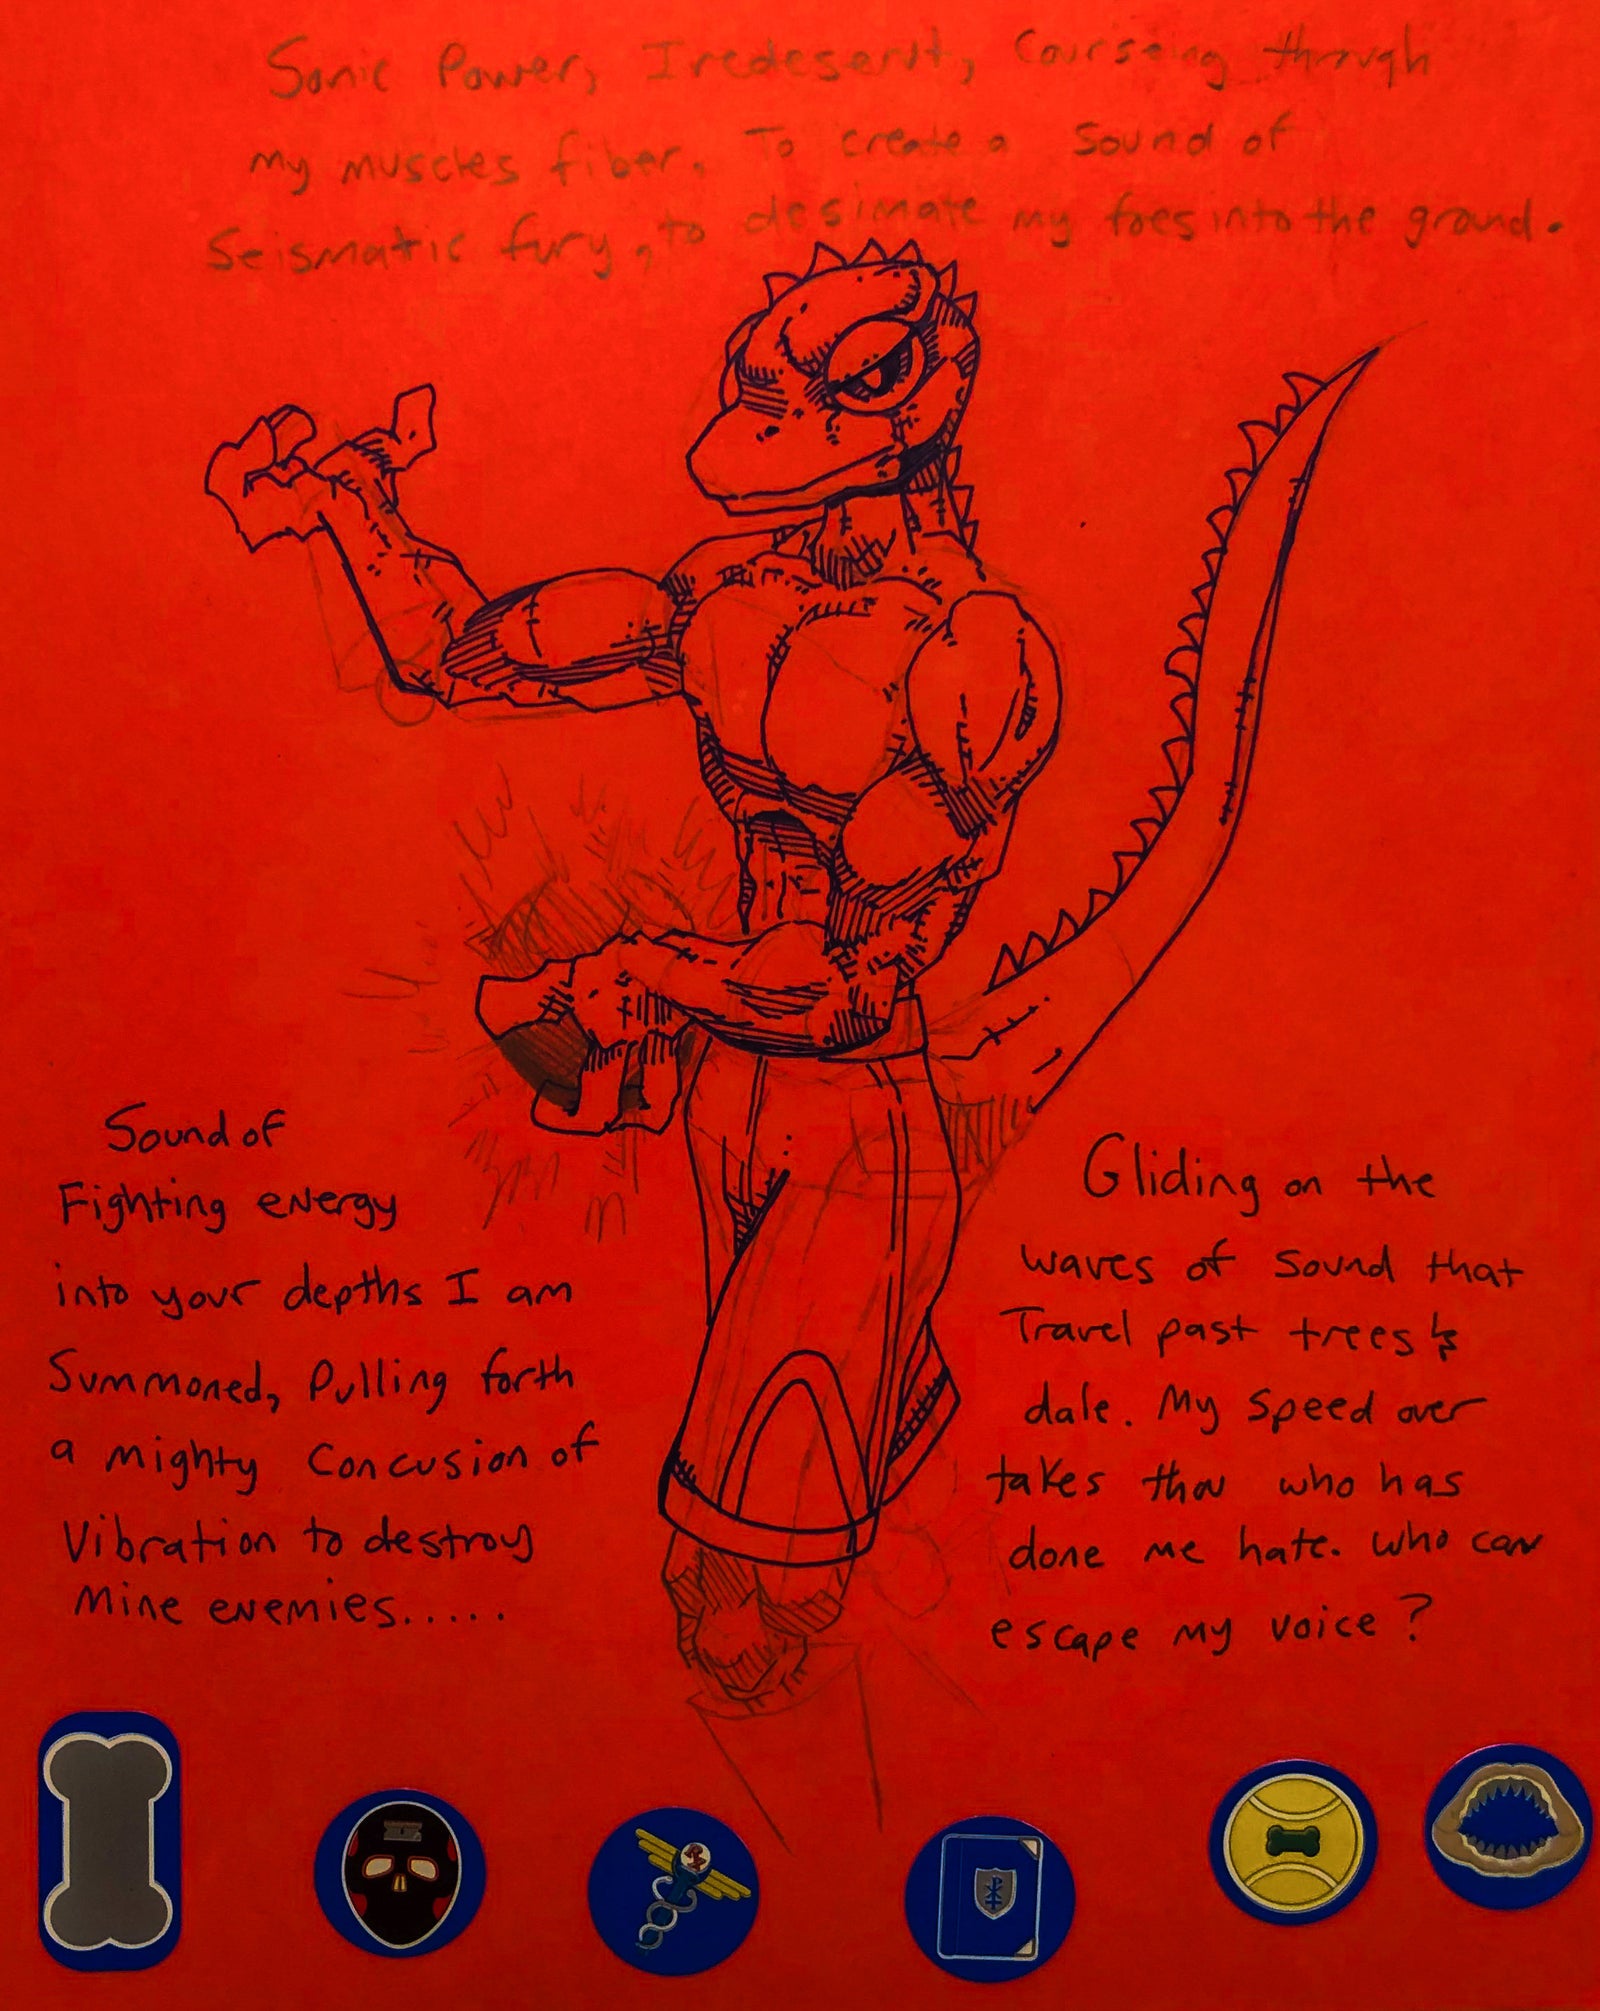 Sonic Power, Iredesent, Courseing through
my muscles fiber, To create a Sound of
Seismatic fury, to desimate my foes into the ground.
Sound of
Fighting energy
into your depths I am
Summoned, Pulling forth
a mighty Concusion of
Vibration to destroy
Mine enemies.....
Gliding on the
waves of Sound that
Travel past trees &
dale. My Speed over
takes thou who has
done me hate. Who can
escape my voice?